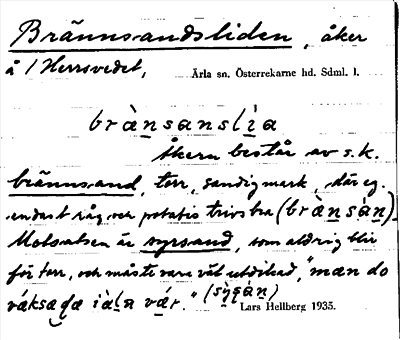 Brännsandsliden, åker
å / Herrsvedet, Ärla sn. Österrekarne hd. Sdml. l.
brὰn̲sanslì̲a
Åkern består av s.k.
brännsand, torr, sandig mark, där eg.
endast råg och potatis trivs bra (brὰn̲sàn̲).
Motsatsen är syrsand, som aldrig blir
för torr, och måste vara väl utdikad, "män do
(sỳ̲sàn̲)
vár."
Lars Hellberg 1935.